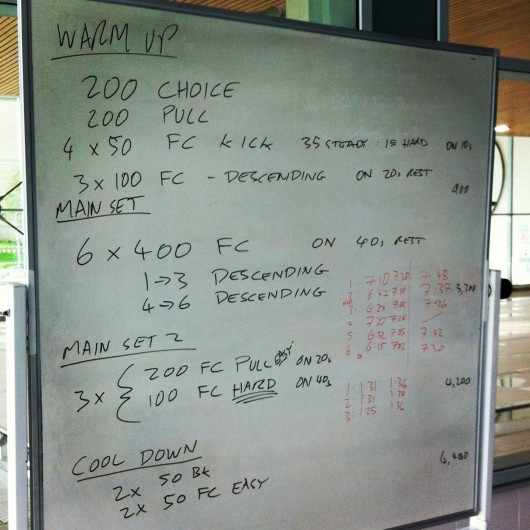 WARM UP
200 CHOICE
200 PULL
4 x 50 FC KICK 35 STEADY 15 HARD ON 10s
3 x 100 FC - DESCENDING ON 20s REST
900
MAIN SET
6 x 400 FC ON 40s REST
1→3 DESCENDING
4→6 DESCENDING
3,300
1 7.10 7.48
2 7.37
3 7.26
4
5 7.42
6 6.15 7.30
MAIN SET 2
3 x { 200 FC PULL EASY ON 20s
100 FC HARD ON 40s
4,200
1: 1.31 1.36
2: 1.31
3: 1.25 1.26
COOL DOWN
2x 50 BK
2x 50 FC EASY
4,400